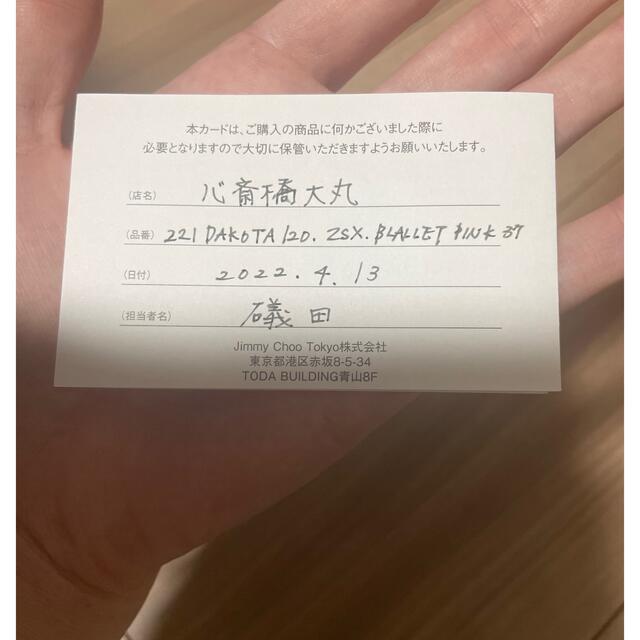 本カードは、ご購入の商品に何かございました際に
必要となりますので大切に保管いただきますようお願いいたします。
(店名) 心斎橋大丸
(品番) 221 DAKOTA 120. ZSX. BLALLET PINK 37
(日付) 2022.4.13
(担当者名) 礒田
Jimmy Choo Tokyo株式会社
東京都港区赤坂8-5-34
TODA BUILDING青山8F